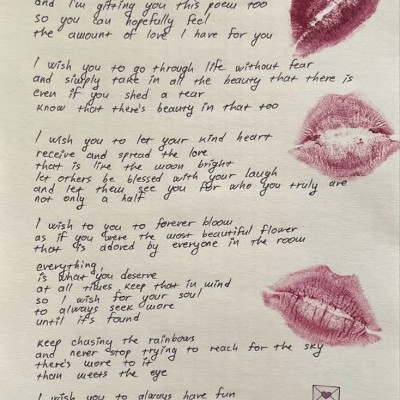 and I'm gifting you this poem too
so you can hopefully feel
the amount of love I have for you
I wish you to go through life without fear
and simply take in all the beauty that there is
even if you shed a tear
know that there's beauty in that too
I wish you to let your kind heart
receive and spread the love
that is like the moon bright
let others be blessed with your laugh
and let them see you for who you truly are
not only a half
I wish to you to forever bloom
as if you were the most beautiful flower
that is adored by everyone in the room
everything,
is what you deserve
at all times keep that in mind
so I wish for your soul
to always seek more
until it's found
keep chasing the rainbows
and never stop trying to reach for the sky
there's more to it
than meets the eye
I wish you to always have fun